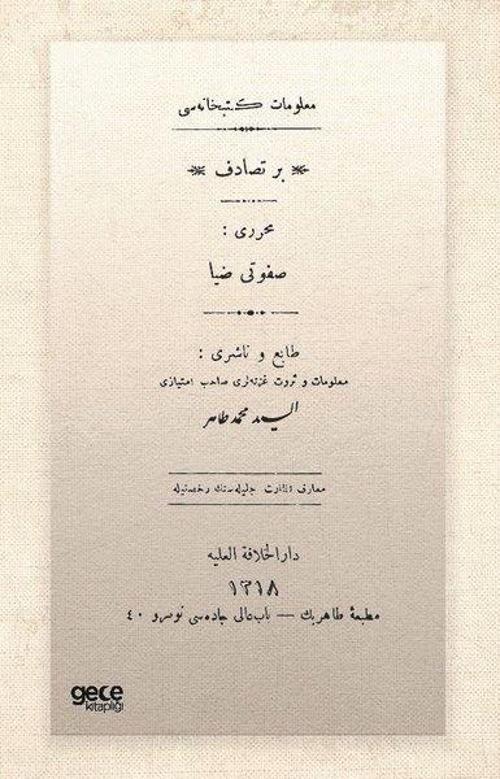 معلومات كتبخانه‌سی
بر تصادف
محرری :
صفوتی ضیا
طابع و ناشری :
معلومات و ثروت غزته‌لری صاحب امتیازی
السید محمد طاهر
معارف نظارت جلیله‌سنك رخصتیله
دارالخلافة العلیه
١٣١٨
مطبعهٔ طاهر بك — باب عالی جاده‌سی نومرو ٤٠
gece
kitaplığı